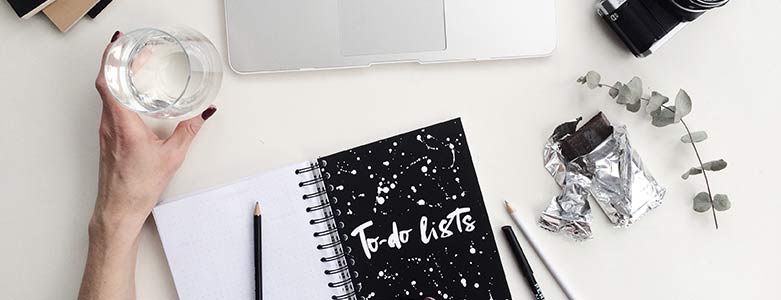 To-do lists